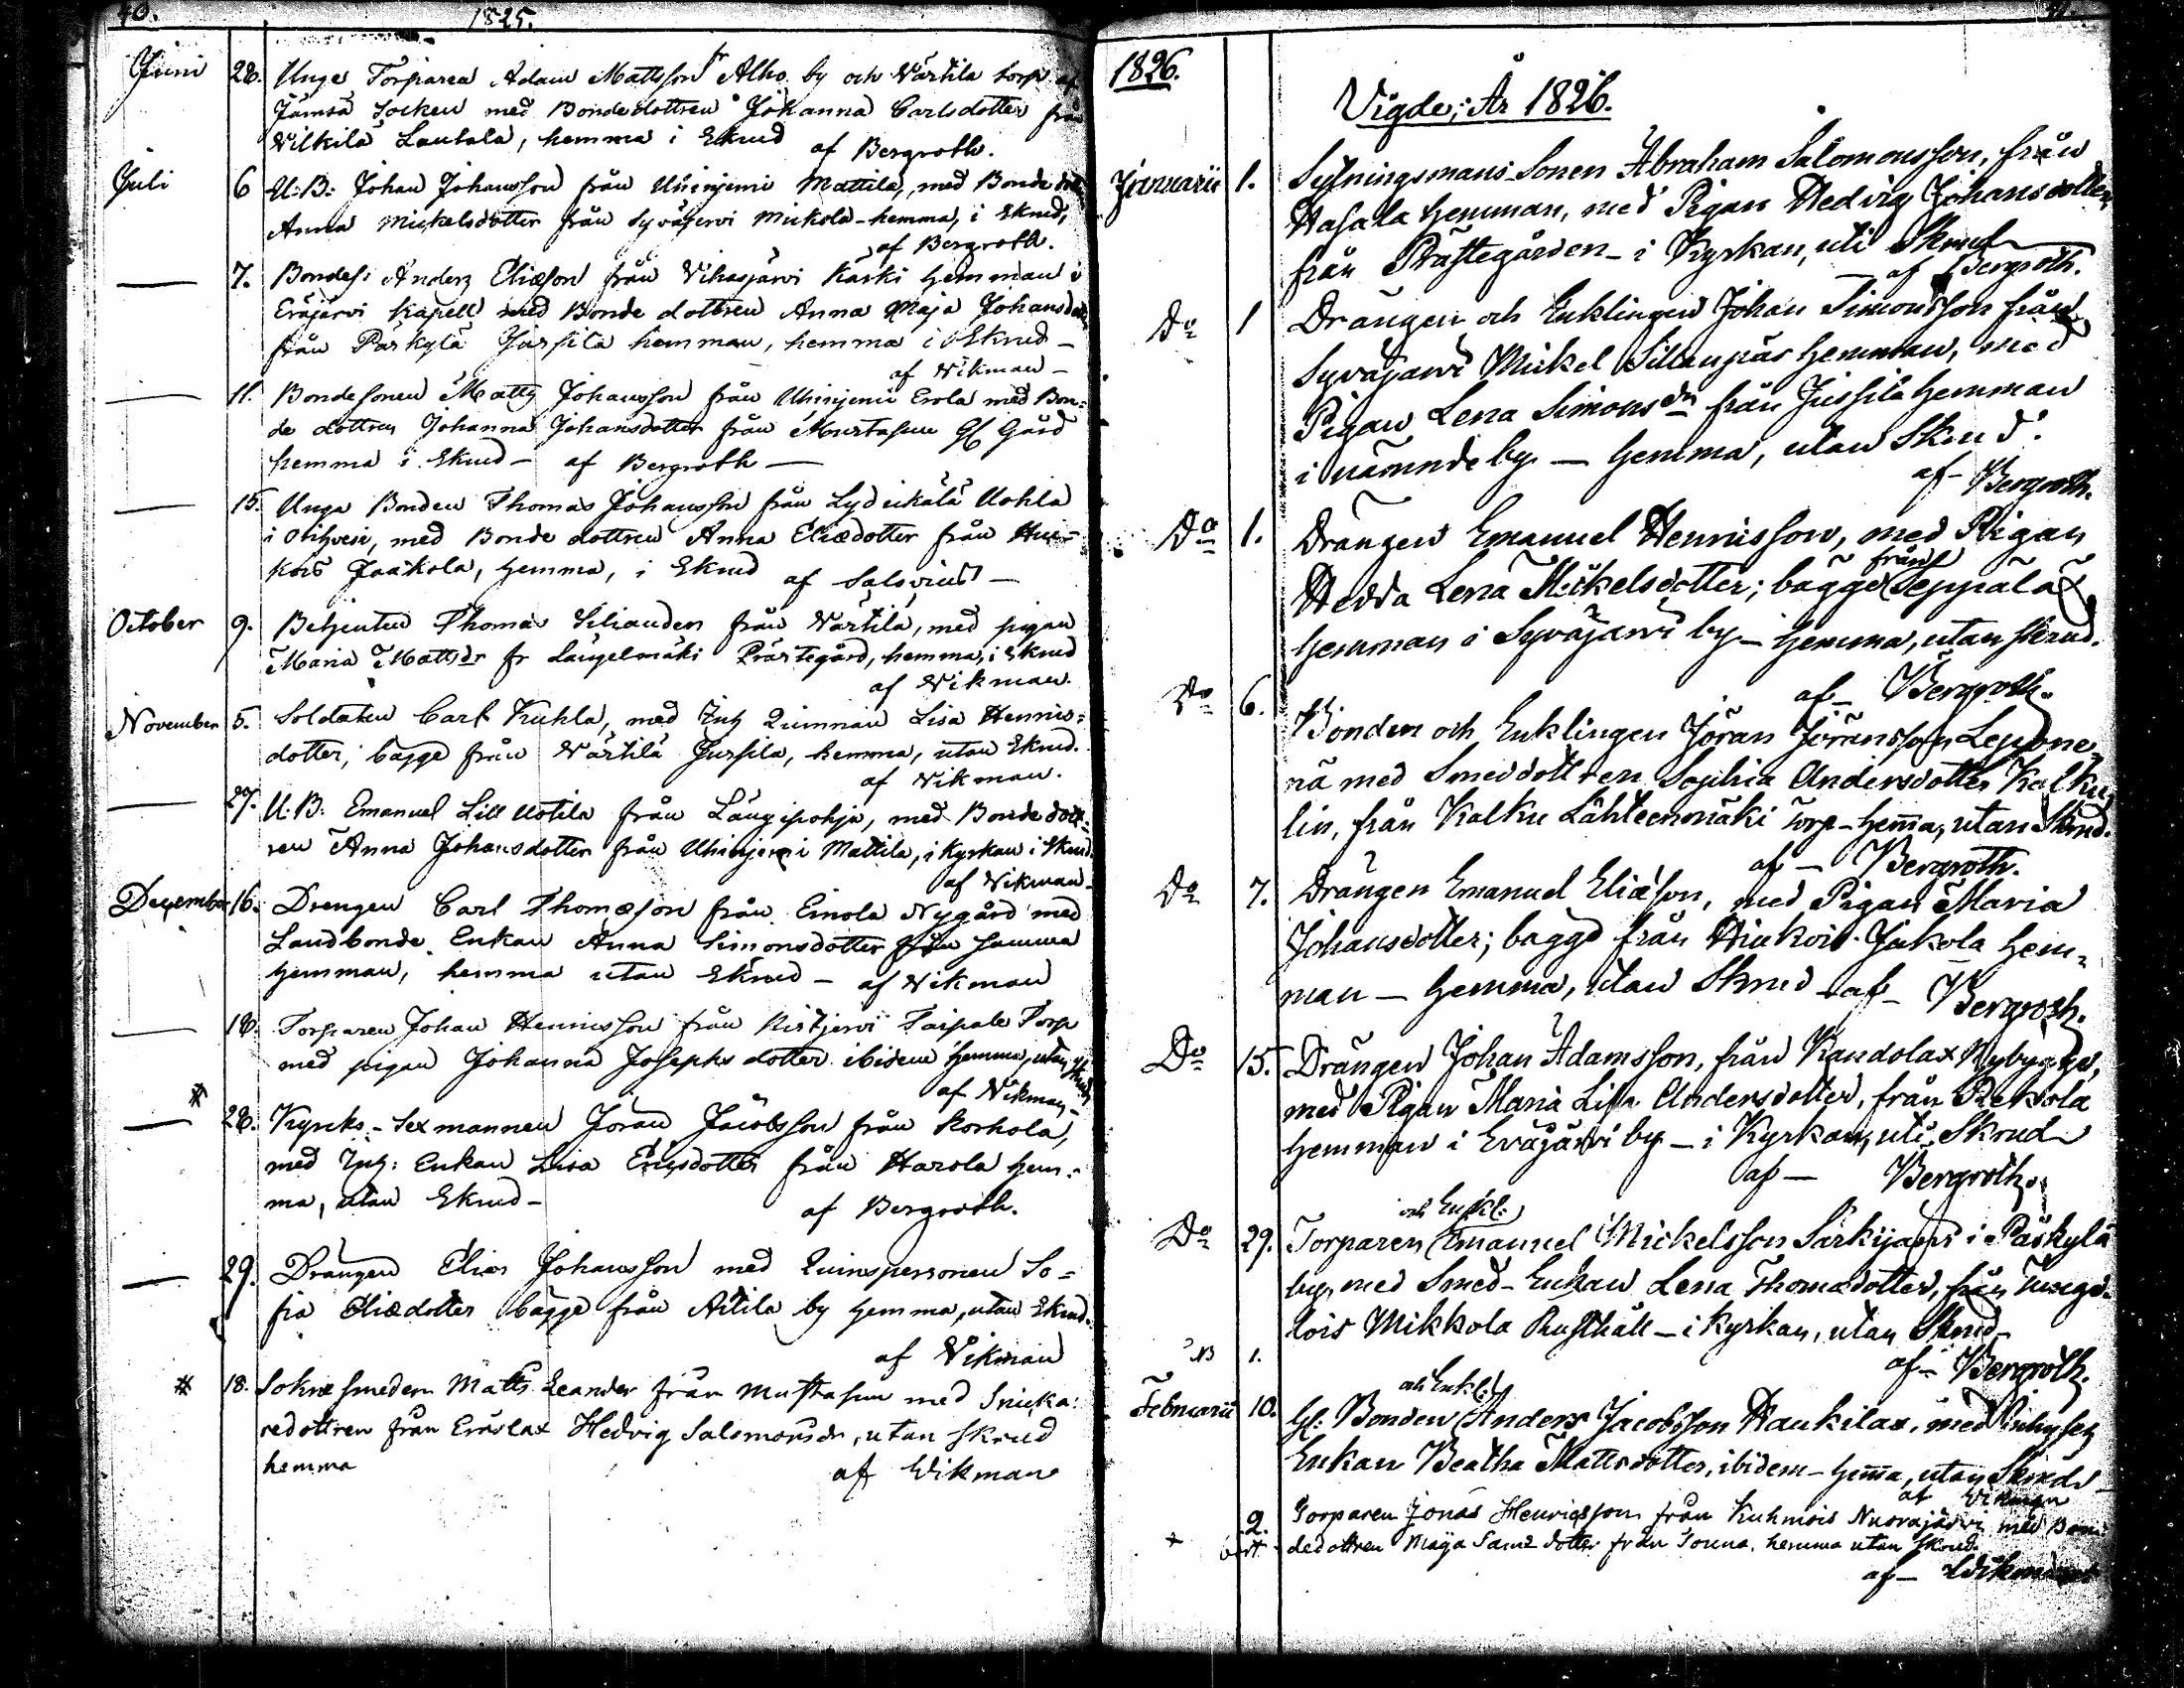 40.
1825.
Juni 28. Unge Torparen Adam Mattsson fr Alho by och Wärtila torp af
Jämsä Socken med Bondedottren Johanna Carlsdotter från
Wilkilä Lautala, hemma i Skrud af Bergroth.
Juli 6 U: B: Johan Johansson från Uhinjemi Mattila, med Bonde
Anna Mickelsdotter från Syväjervi Mickola-hemma, i Skrud,
af Bergroth.
— 7. Bondes: Anders Eliæson från Vihasjärvi Kaski hemman i
Eräjärvi Kapell med Bonde dottren Anna Maja Johansdotter
från Päskylä Jussila hemman, hemma i Skrud —
af Wikman —
— 11. Bondesonen Matts Johansson från Uhinjemi Erola med Bon-
de dottren Johanna Johansdotter från Mustasun Gård
hemma i Skrud — af Bergroth —
— 15. Unga Bonden Thomas Johansson från Lydikälä Uohla
i Orihvesi, med Bonde dottren Anna Eliædotter från
Jaakola, hemma, i Skrud af Salovius —
October 9. Betjenten Thomas Seliander från Wärtila, med pigan
Maria Mattsdr fr Längelmäki Prästegård, hemma, i Skrud
af Wikman.
November 5. Soldaten Carl Kuhla, med Inh Quinnan Lisa Henrics-
dotter; bägge från Wärtilä Jussila, hemma, utan Skrud.
af Wikman.
— 27. U: B: Emanuel Lill Uotila från Längipohja, med Bonde dott-
ren Anna Johansdotter från Uhinjemi Mattila, i Kyrkan i Skrud.
af Wikman —
December 16. Drengen Carl Thomæson från Einola Nygård med
Landbonde Enkan Anna Simonsdotter från samma
hemman, hemma utan Skrud — af Wikman
— 18. Torparen Johan Henricsson från Ristjervi Taipale Torp
med pigan Johanna Josephsdotter ibidem hemma, utan Skrud
af Wikman —
— 28. Kyrcko-Sexmannen Jöran Jacobsson från Korhola,
med Inh: Enkan Lisa Ericsdotter från Harola hem-
ma, utan Skrud — af Bergroth.
— 29. Drängen Elias Johansson med Quinspersonen So-
fia Eliædotter bägge från Attila by hemma, utan Skrud.
af Wikman
18. Sokne smeden Matts Leander från Mustasun med Snicka-
redottren från Eräslax Hedvig Salomonsdr, utan skrud
hemma af Wikman
41.
1826.
Vigde; År 1826.
Januarii 1. Sytningsmans-Sonen Abraham Salomonsson, från
Hasala hemman, med Pigan Hedvig Johansdotter
från Prästegården — i Kyrkan, uti Skrud
— af Bergroth.
Do 1 Drängen och Enklingen Johan Simonsson från
Syväjärvi Mickel Sillanpää hemman, med
Pigan Lena Simonsdr från Jussila hemman
i nämnde by — hemma, utan Skrud.
af — Bergroth.
Do 1. Drängen Emanuel Henricsson, med Pigan
Hedda Lena Mickelsdotter; bägge från Seppälä
hemman i Syväjärvi by — hemma, utan skrud.
af — Bergroth.
Do 6. Bonden och Enklingen Jöran Jöransson
med Smeddottren Sophia Andersdotter Kalku-
lin, från Kalku Lähteenmäki torp — hema, utan Skrud.
af — Bergroth.
Do 7. Drängen Emanuel Eliæson, med Pigan Maria
Johansdotter; bägge från Hiukois Jakola hem-
man — hemma, utan Skrud — af — Bergroth.
Do 15. Drängen Johan Adamsson, från Kaudolax Nybygge,
med Pigan Maria Lisa Andersdotter, från Rekola
hemman i Eväjärvi by — i Kyrkan, uti Skrud
af — Bergroth.
och Enkl:
Do 29. Torparen Emanuel Mickelsson Särkijärvi i Päskylä
by, med Smed-Enkan Lena Thomædotter, från
Mikkola Rusthåll — i Kyrkan, utan Skrud —
af — Bergroth.
NB 1.
och Enkl:
Februarii 10. Bonden Anders Jacobsson Haukilax, med Inhyses
Enkan Beatha Mattsdotter, ibidem — hema, utan Skrud
af Wikman
2. Torparen Jonas Henricsson från Kuhmois Nuorajärvi med Bon-
dedottren Maja Sam: dotter från Jouna, hemma utan skrud.
af — Wikman